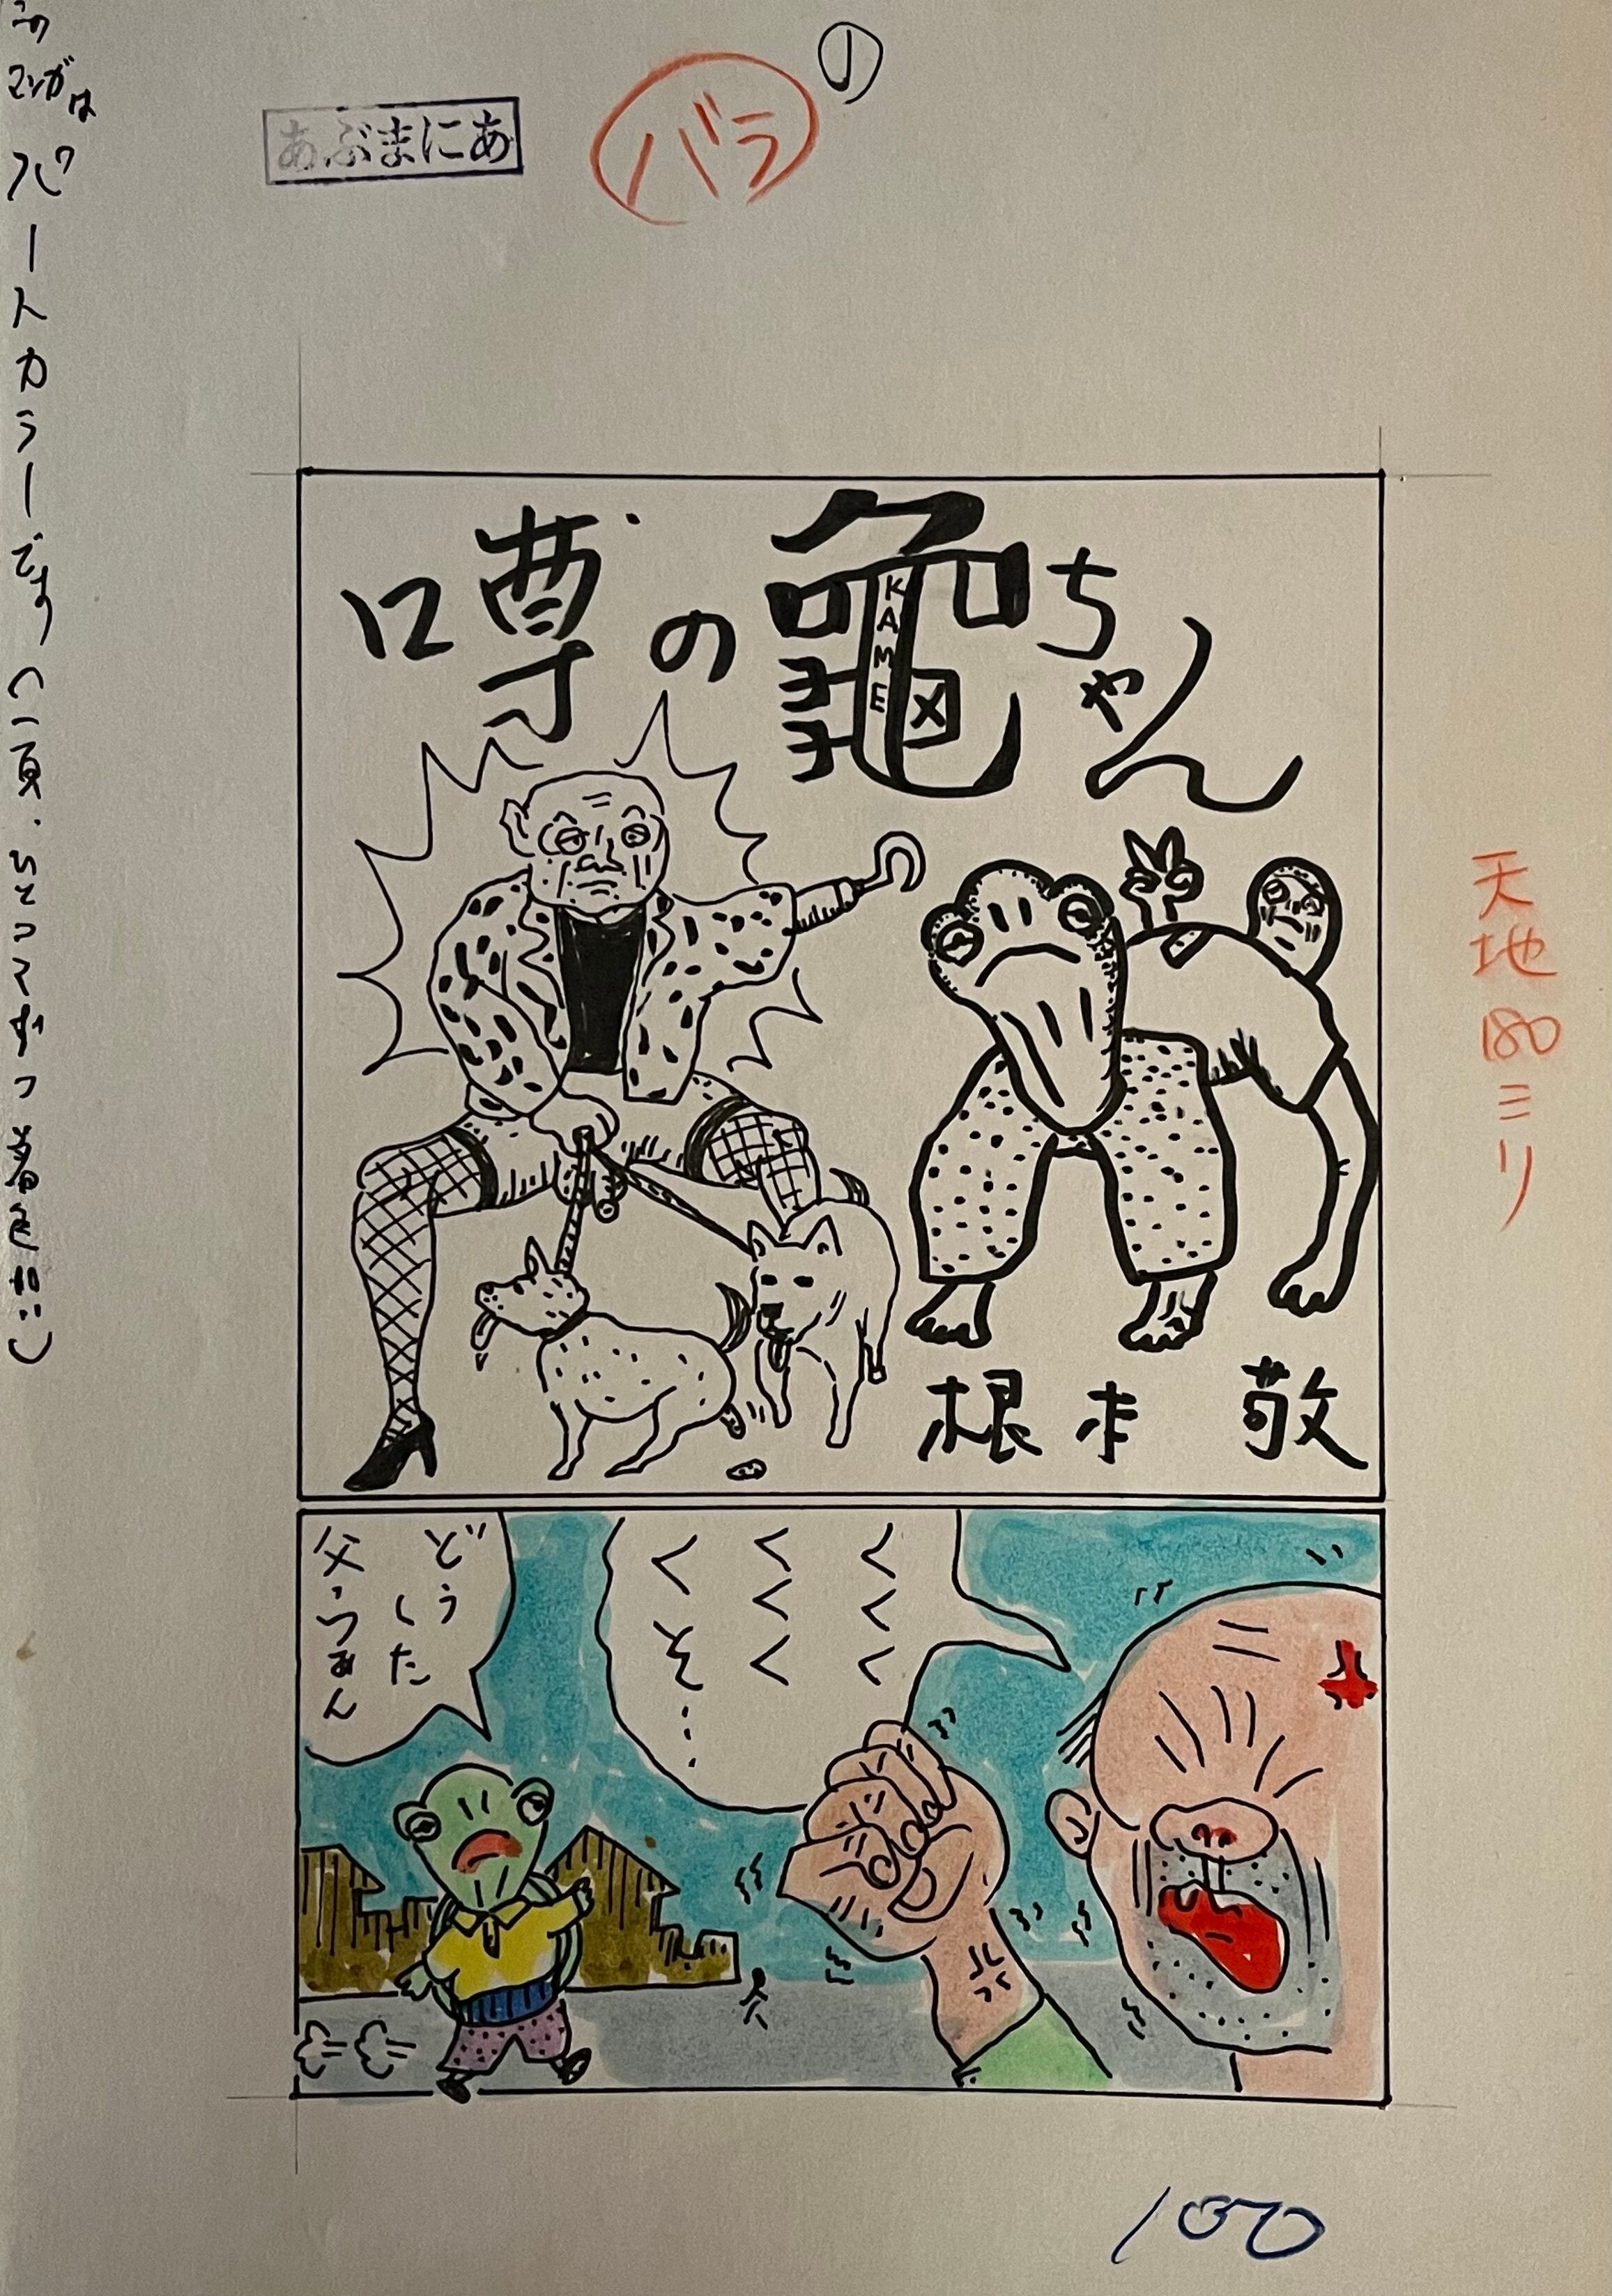 ①
バラ
あぶまにあ
このマンガはパートカラーです(一頁・ひとコマずつ着色!!)
噂の亀ちゃん
KAME
根本 敬
天地180ミリ
くくく
くくく
くそ…
どう
した
父つぁん
100